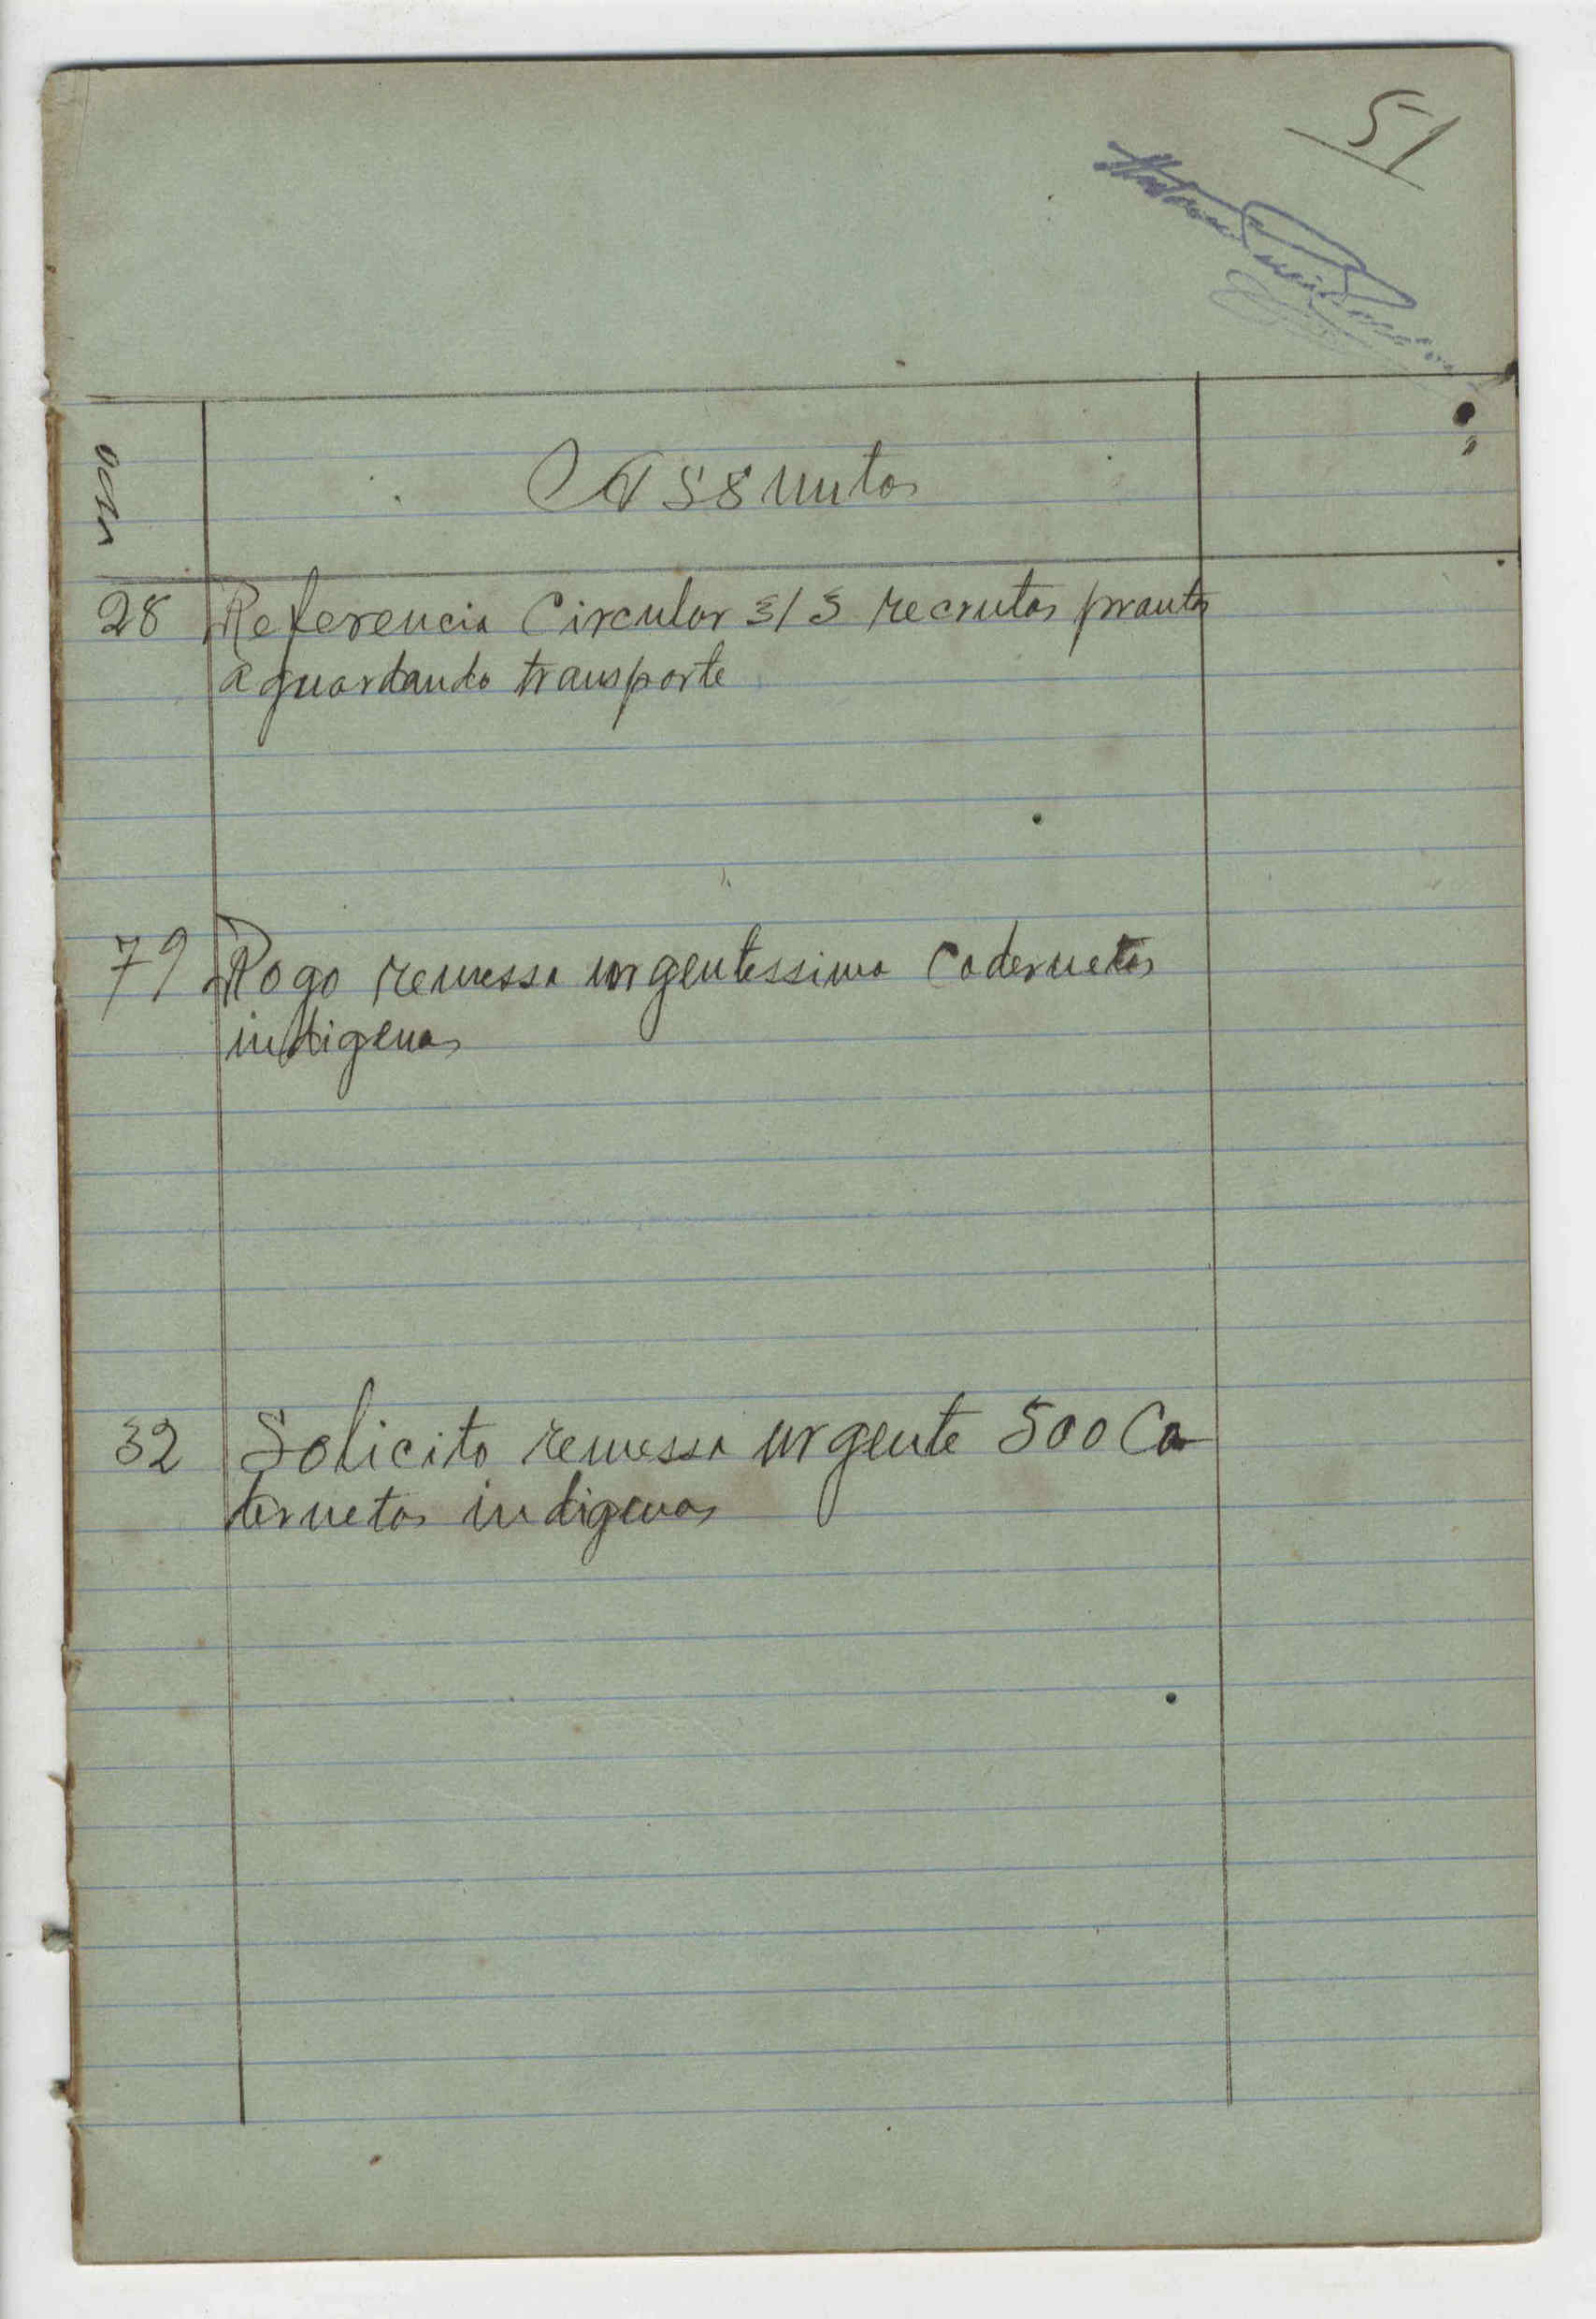 51
Assuntos
28 Referencia Circular 31 5 recrutas prontos
aguardando transporte
79 Rogo remessa urgentessima Cadernetas
indigenas
32 Solicito remessa urgente 500 Ca
dernetas indigenas